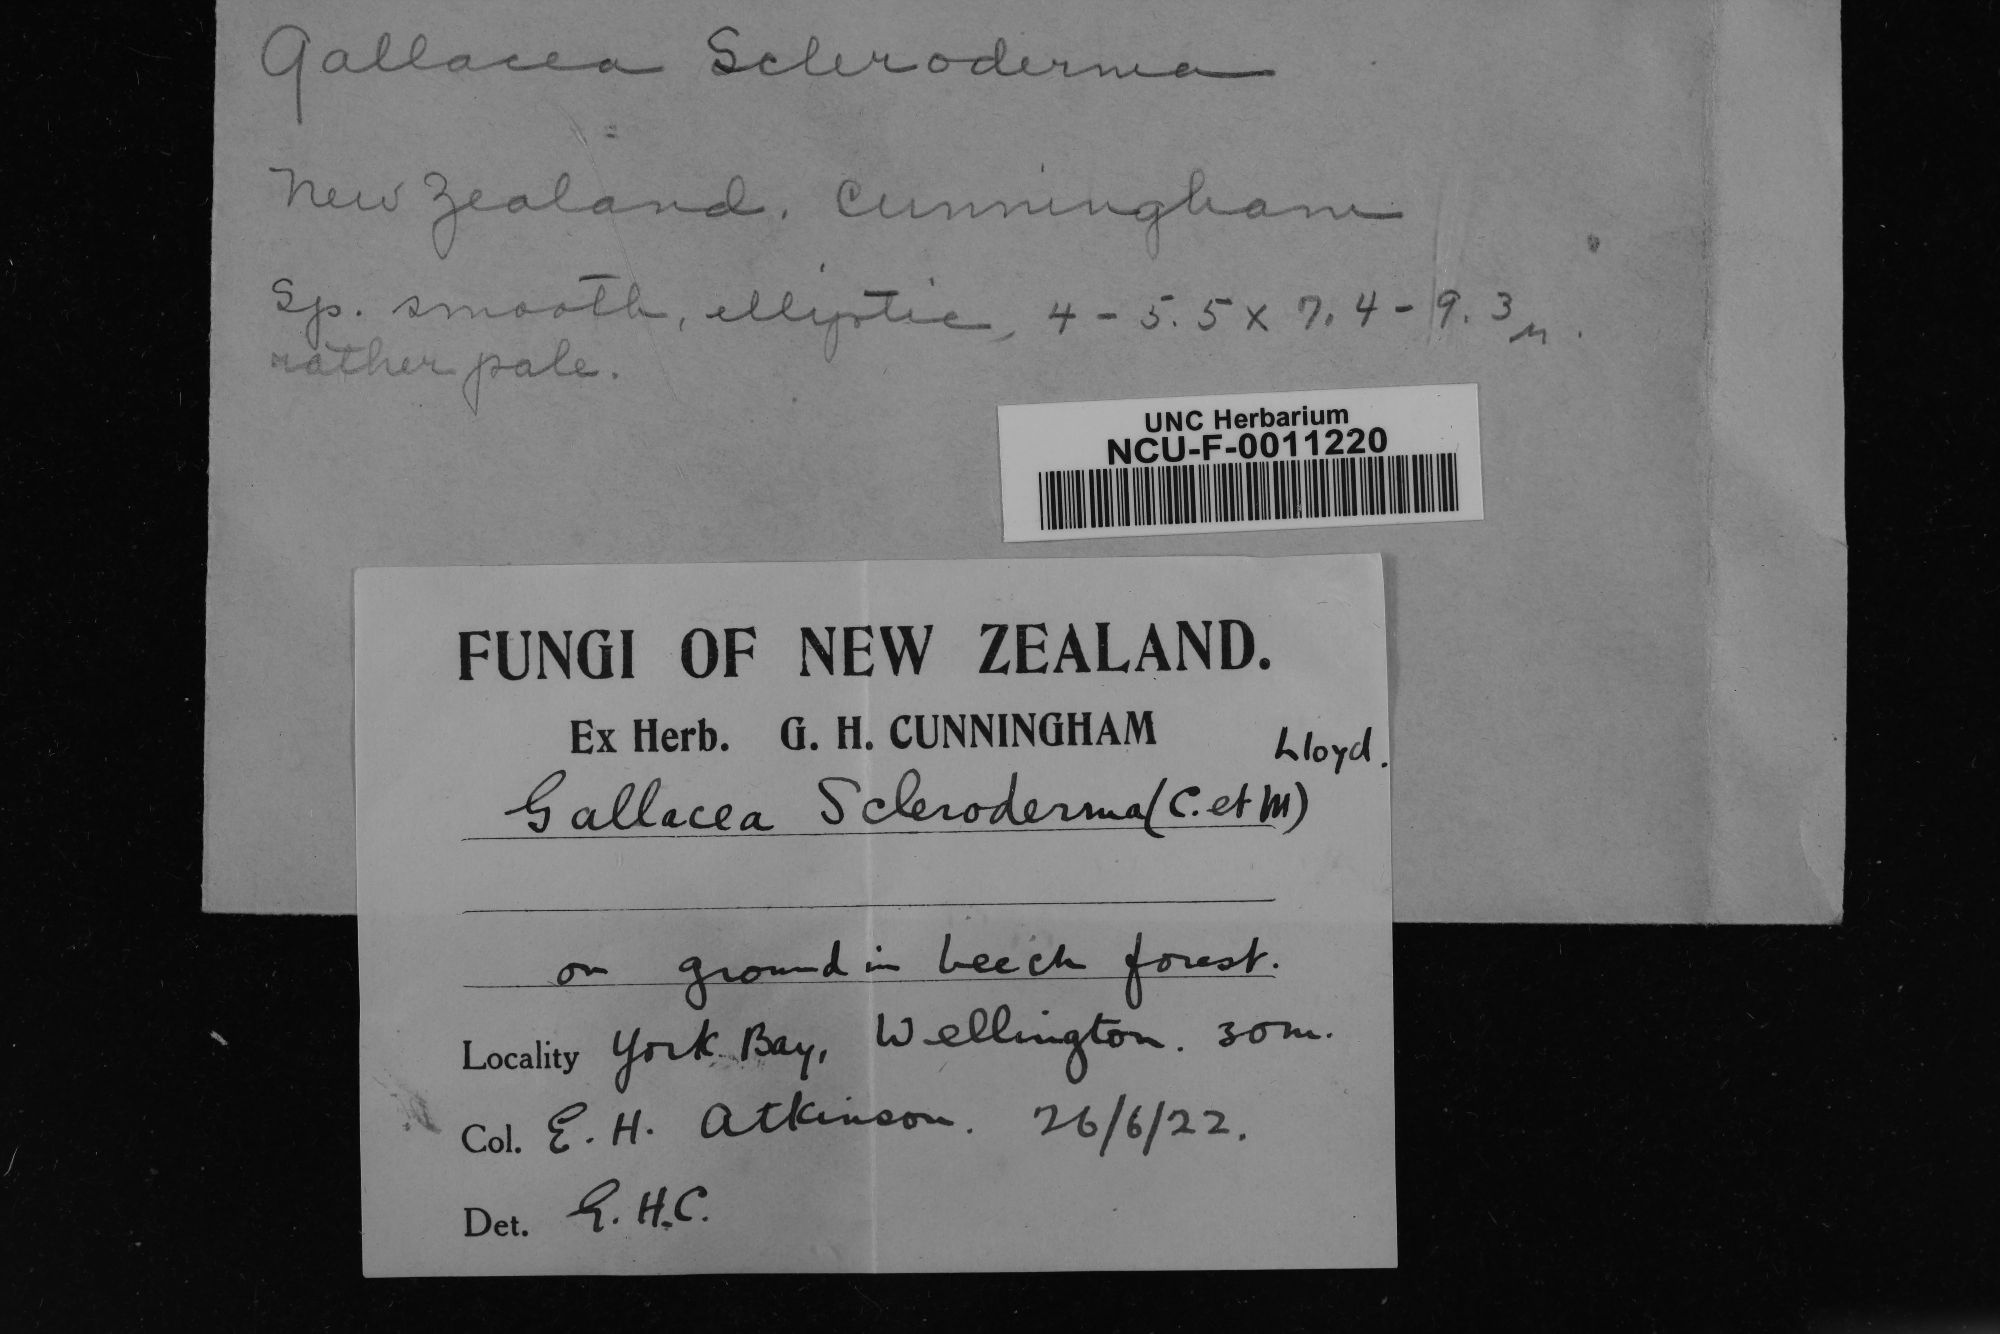 Gallacea Scleroderma
New Zealand. Cunningham
Sp. smooth, elliptic, 4 - 5.5 x 7.4 - 9.3 µ.
rather pale.
UNC Herbarium
NCU-F-0011220
FUNGI OF NEW ZEALAND.
Ex Herb. G. H. CUNNINGHAM
Lloyd.
Gallacea Scleroderma (C. et M)
on ground in beech forest.
Locality York Bay, Wellington. 30m.
Col. E. H. Atkinson. 26/6/22.
Det. G. H. C.